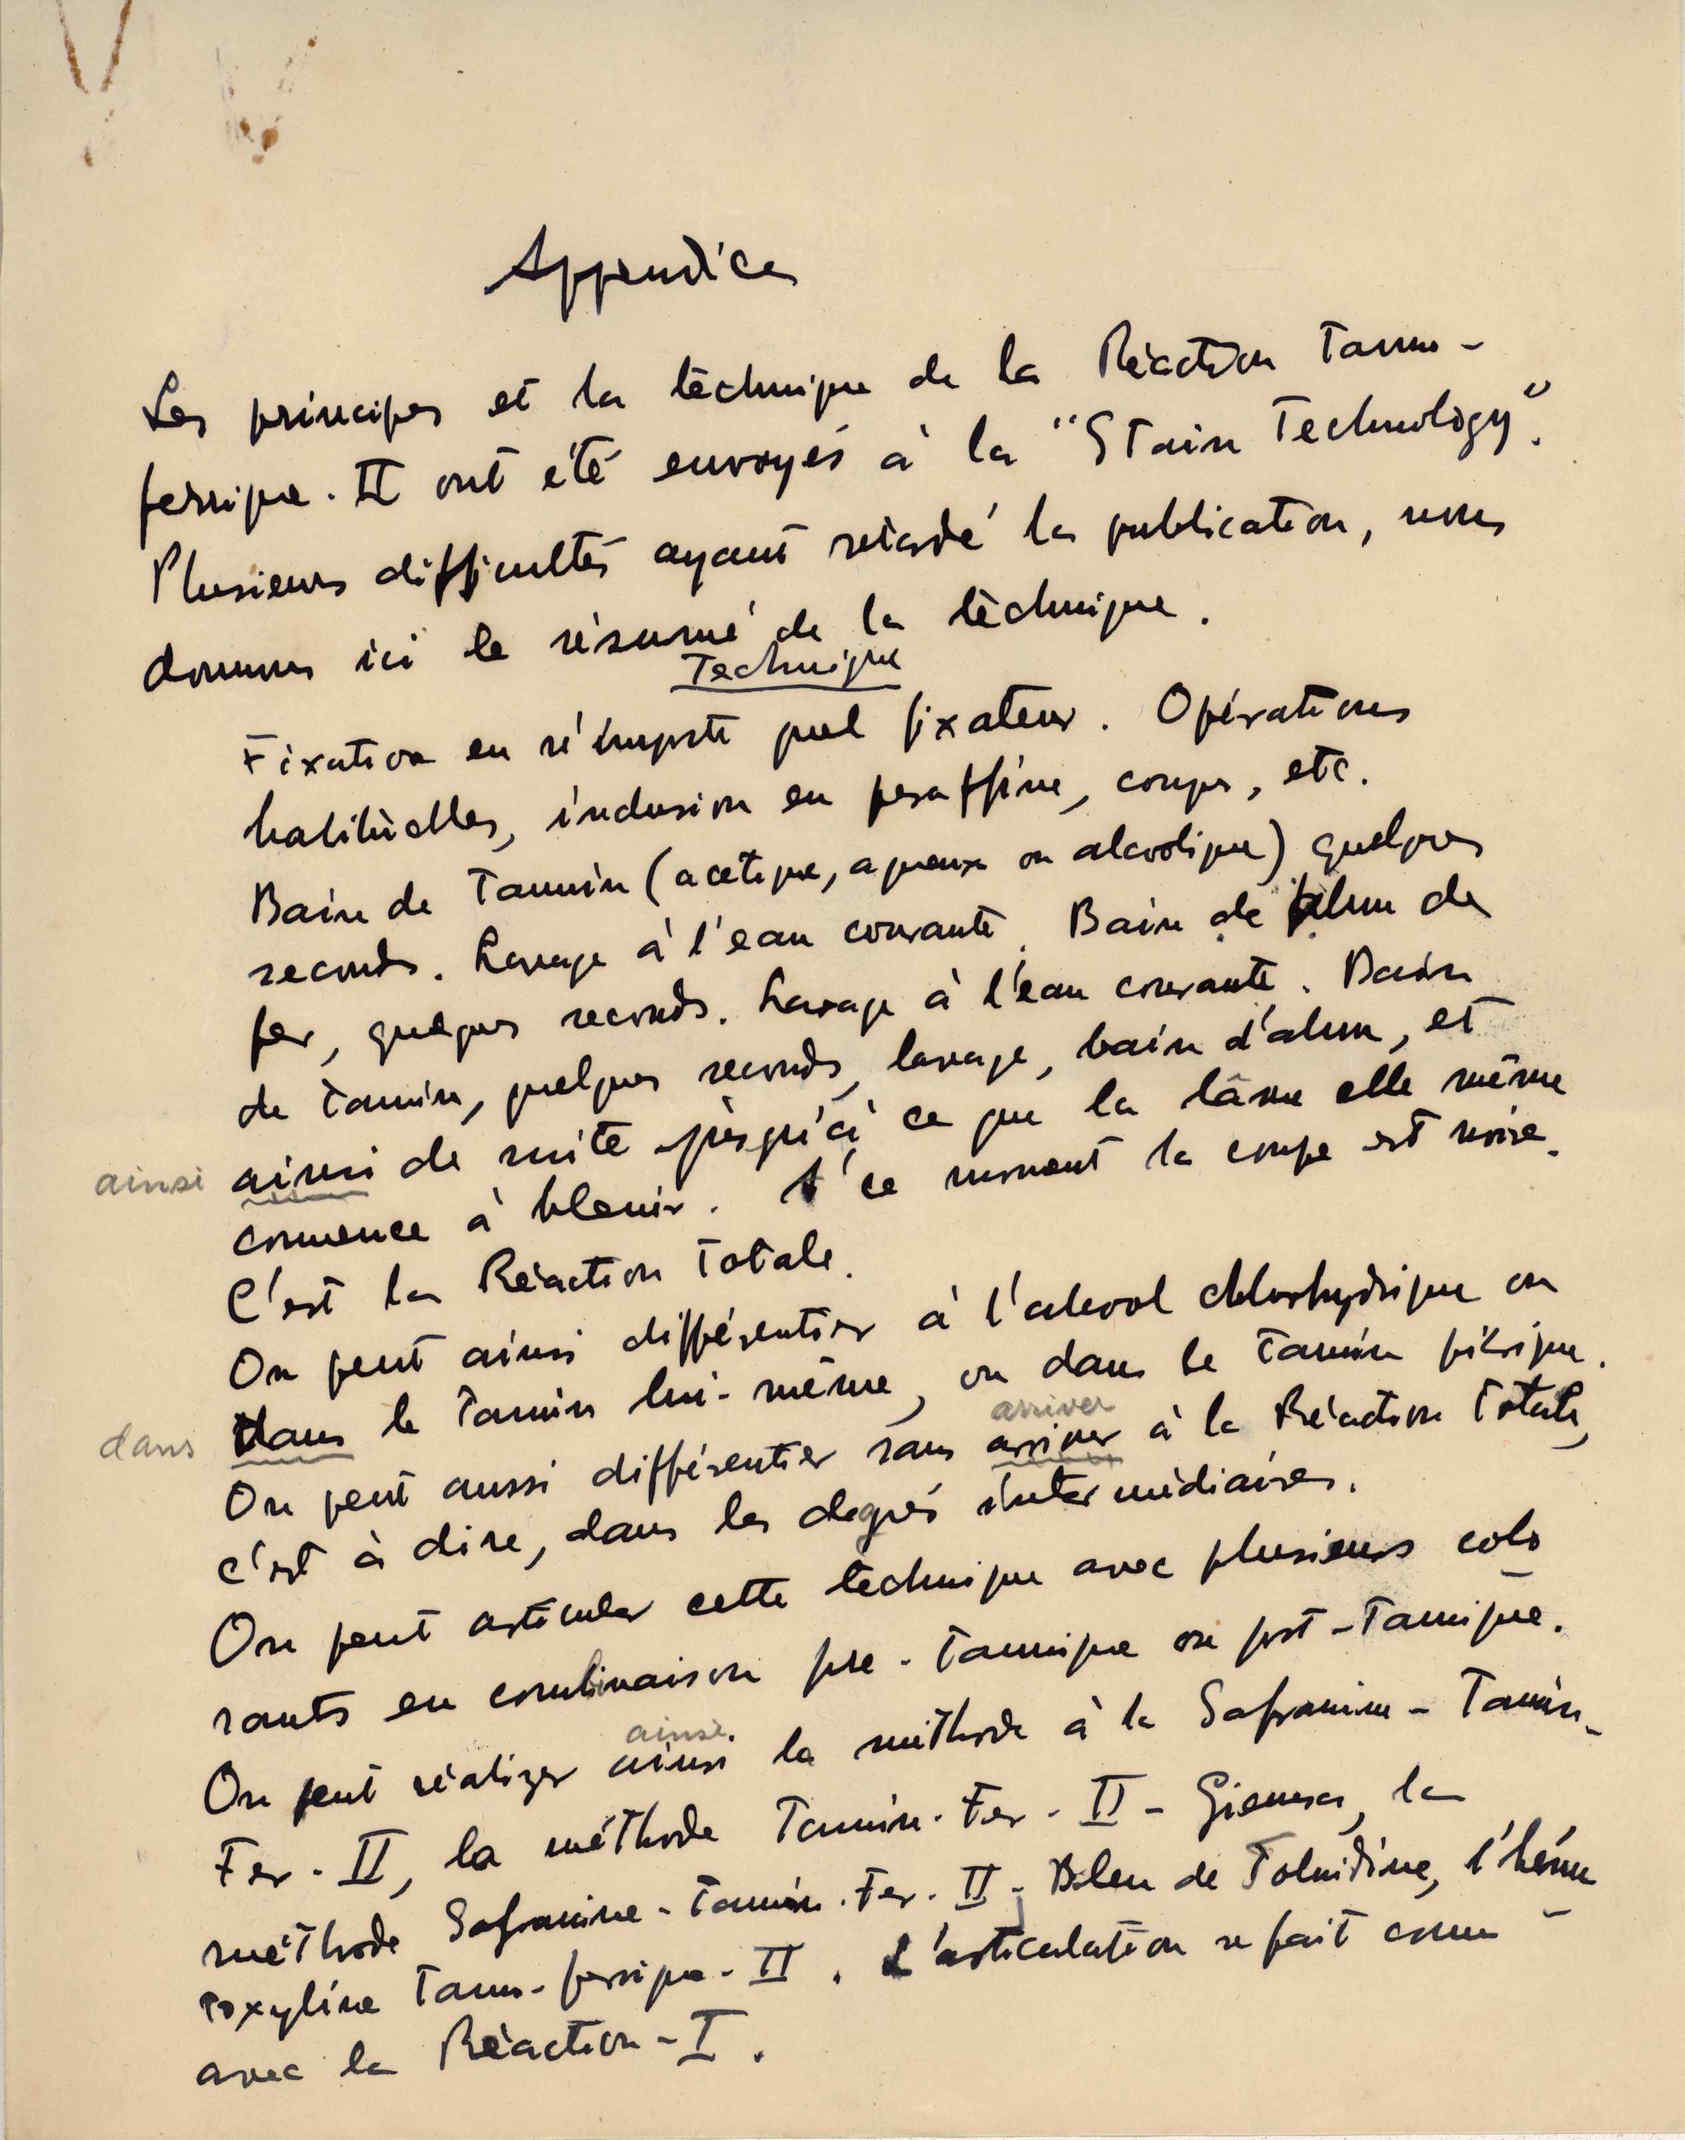 Appendice
Les principes et la tèchnique de la Réaction Tanno-
ferrique. II ont été envoyés à la "Stain Technology".
Plusieurs difficultés ayant retardé la publication, nous
donnons ici le résumé de la tèchnique.
Technique
Fixation en n'importe quel fixateur. Opérations
habituelles, inclusion en paraffine, coupes, etc.
Bain de Tannin (acetique, aqueux ou alcoolique) quelques
seconds. Lavage à l'eau courante. Bain de alun de
fer, quelques seconds. Lavage à l'eau courante. Bain
de tannin, quelques seconds, lavage, bain d'alun, et
ainsi ainsi de suite jusqu'à ce que la lâme elle même
commence à bleuir. A ce moment la coupe est noire.
C'est la Réaction Totale.
On peut ainsi différentier à l'alcool chlorhydrique ou
dans dans le Tannin lui-même, ou dans le Tannin picrique.
arriver
On peut aussi différentier sans arriver à la Réaction Totale,
c'est à dire, dans les degrés intermédiaires.
On peut articuler cette technique avec plusieurs colo
rants en combinaison pre-tannique ou post-Tannique.
ainsi
On peut réalizer ainsi la méthode à la Safranine-Tannin-
Fer-II, la méthode Tannin-Fer-II-Giemsa, la
méthode Safranine-Tannin-Fer-II-Bleu de Toluidine, l'héma
toxyline Tanno-ferrique-II. L'articulation se fait comme
avec la Réaction-I.